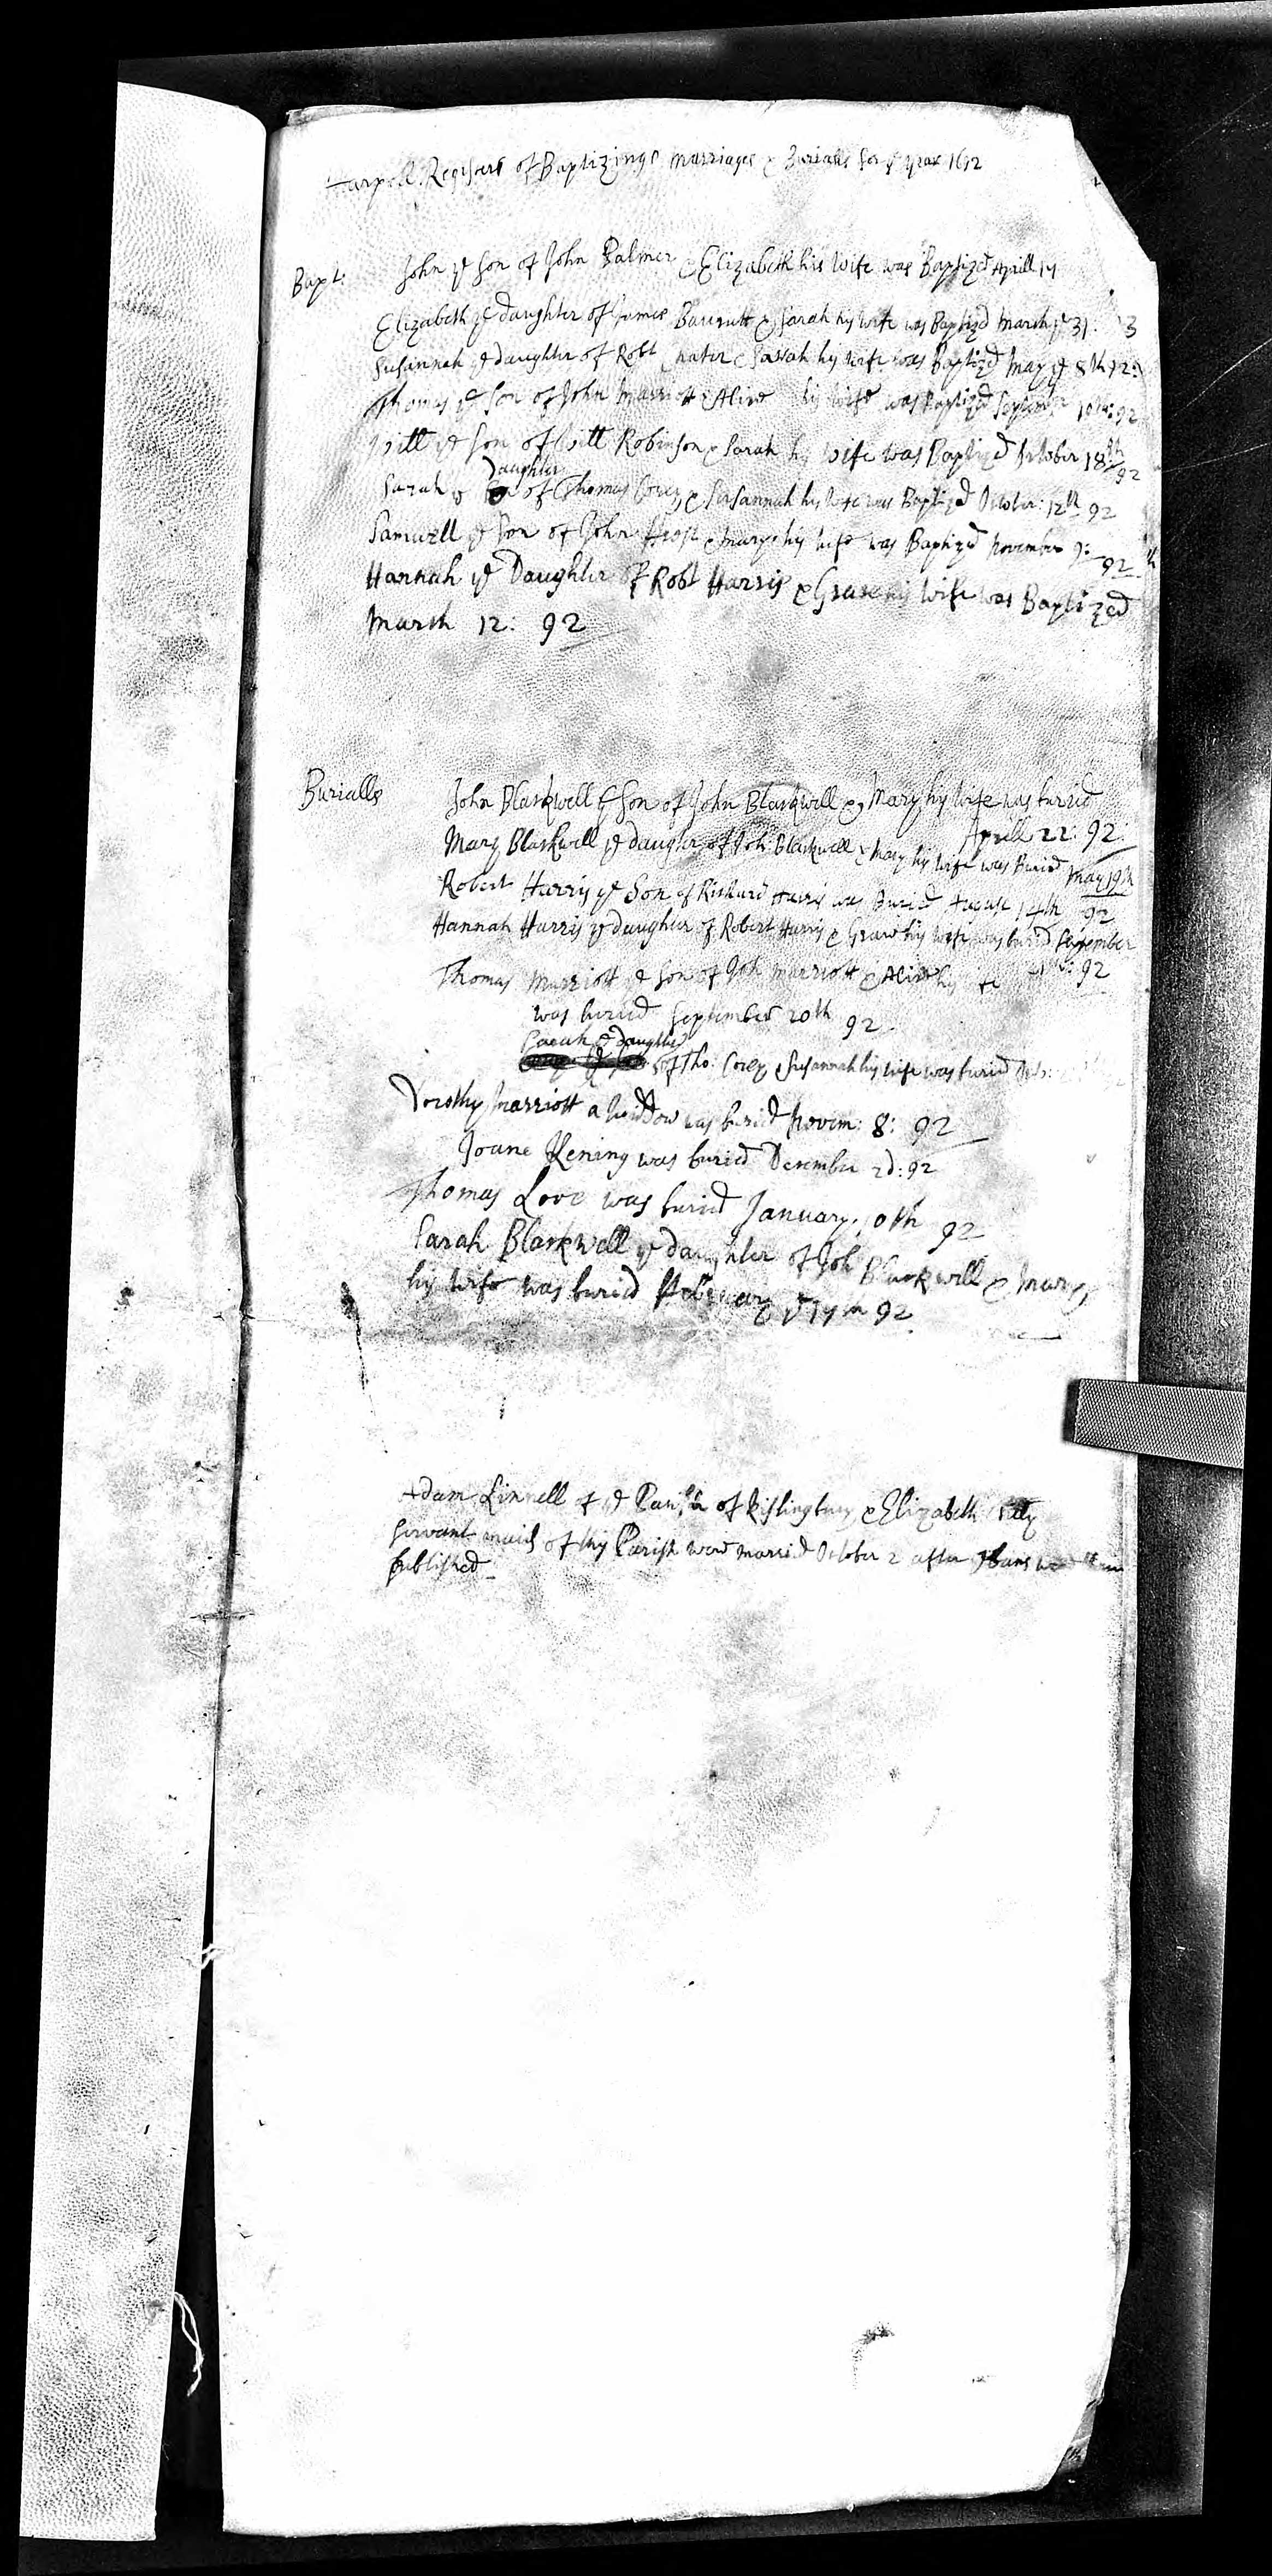 Registers of Baptizings Marriages & Burialls for ye year 1692
Bapt: John ye Son of John Palmer & Elizabeth his Wife was Baptized Aprill 17
Elizabeth ye daughter of James & Sarah his wife was Baptizd March ye 31: 3
Susannah ye daughter of Robt & Sarah his wife was Baptizd May ye 8th
Thomas ye Son of John Marriott & Alice his wife was Baptized September 92
Will ye Son of Will Robinson & Sarah his Wife was Baptized October 18th 92
Daughter
Sarah ye of Thomas Corey & Susannah his Wife was Baptizd October: 12th 92
Samuell ye Son of John & Mary his Wife was Baptized November 9: 92 th
Hannah ye Daughter of Robt Harris & Grace his Wife was Baptized
March 12: 92
Burialls John Blackwell ye Son of John Blackwell & Mary his Wife was buried
Aprill 22: 92:
Mary Blackwell ye daughter of Joh: Blackwell & Mary his Wife was Buried May 19th
Robert Harris ye Son of Richard Harris was Buried August 14th 92
Hannah Harris ye daughter of Robert Harris & Grace his Wife was buried September
92
Thomas Marriott ye Son of Joh Marriott & Alice his
was buried September 20th 92
Sarah ye daughter
of Tho: Corey & Susannah his Wife was buried
Dorothy Marriott a Widdow was buried Novem: 8: 92
Joane Kening was buried December 2d: 92
Thomas Love was buried January: 92
Sarah Blackwell ye daughter of Joh Blackwell & Mary
his Wife was buried February ye 92
Adam Linnell of ye Parish of Kislingbury & Elizabeth
Servant maid of this Parish were married October 2 after ye bans
published